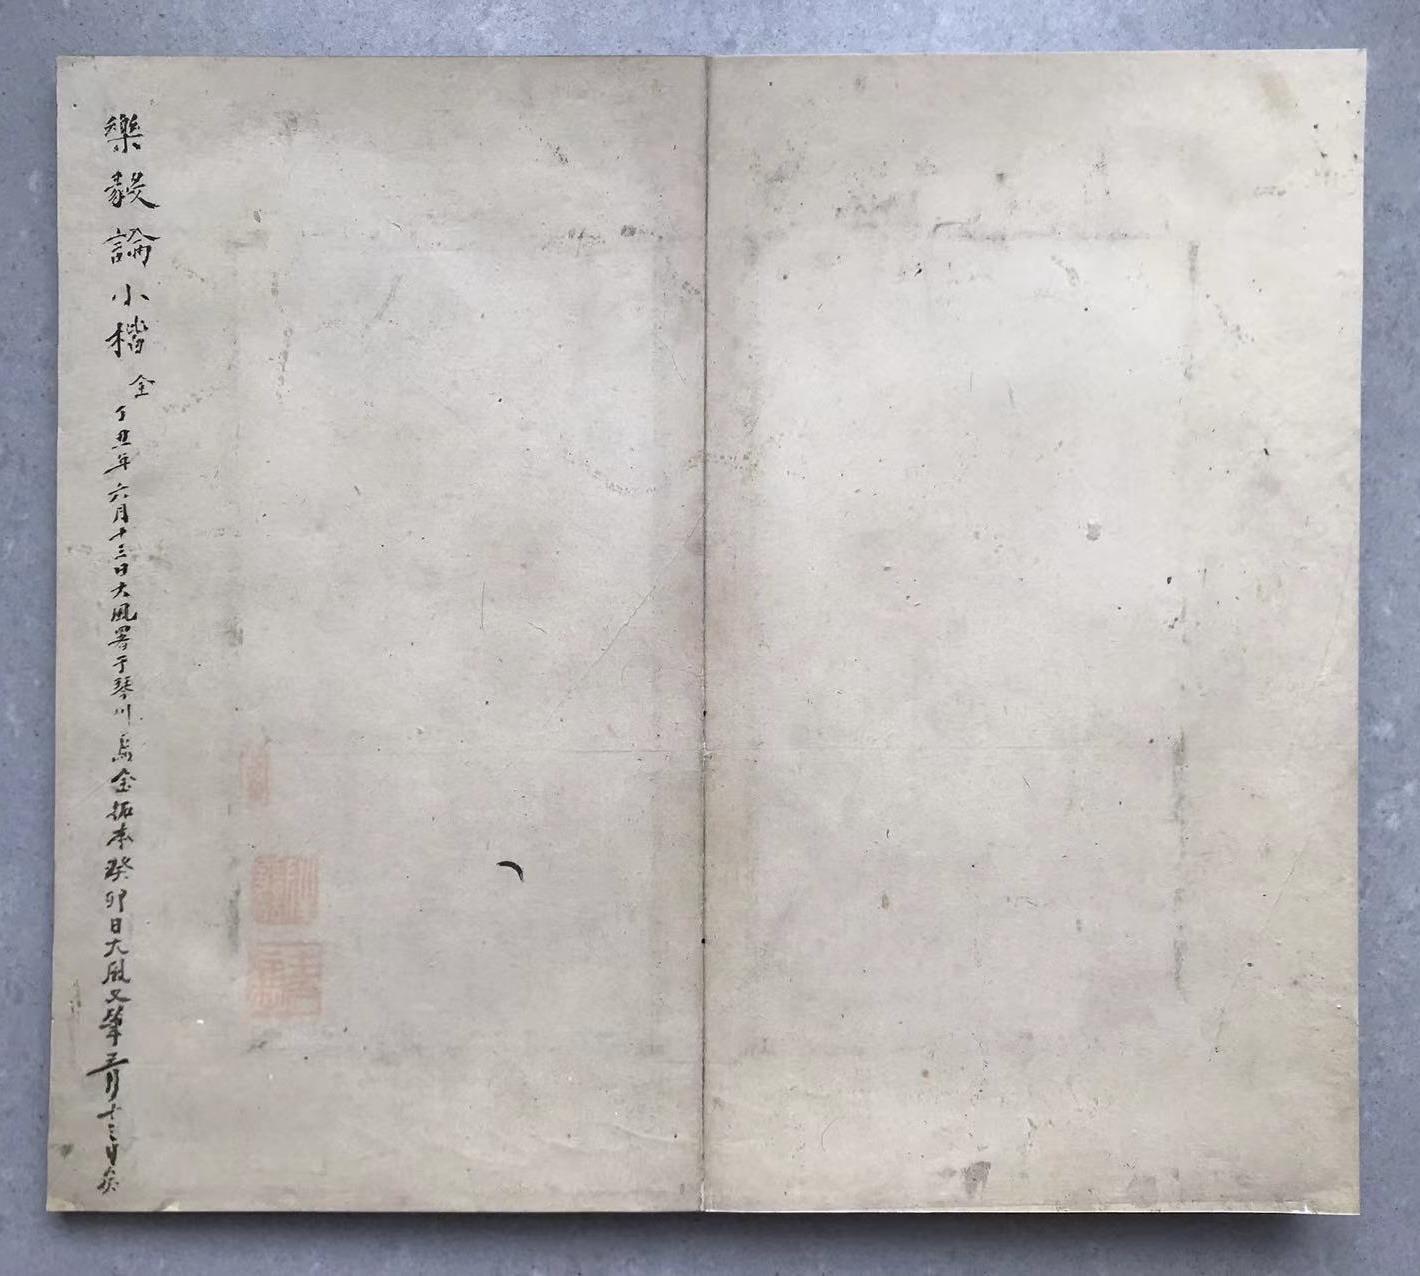 樂毅論小楷全丁丑年六月十三日大風署于琴川烏金拓本癸卯日大風又筆三月十三日矣